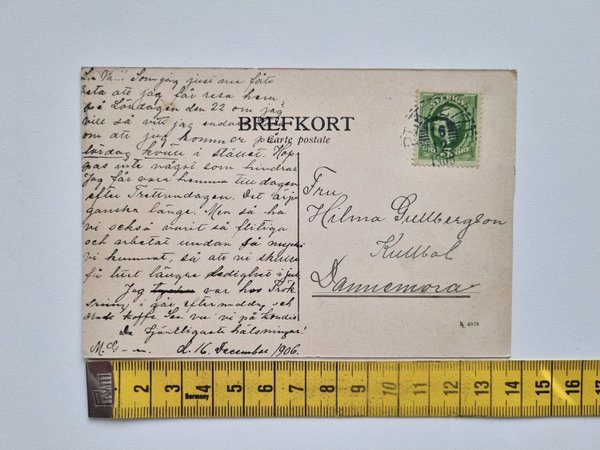 L. M!! Som jag just nu fått
veta att jag får resa hem
på Lördagen den 22 om jag
vill så vill jag endast
om att jag kommer på
lördag kväll i stället. Hop-
pas inte något som hindrar
Jag får vara hemma till dagen
efter Trettondagen. Det är ju
ganska länge. Men så ha
vi också varit så flitiga
och arbetat undan så mycket
vi kunnat, så att vi skulle
få litet längre ledighet i jul
Jag var hos Frök
i går eftermiddag och
kaffe. Sen vi på
De hjärtligaste hälsningar!
d. 16. December 1906.
BREFKORT
Carte postale
SVERIGE
Fru
Hilma Gullbergson
Kullbol
Dannemora
K 4079
1 2 3 4 5 6 7 8 9 10 11 12 13 14 15 16 17
Germany